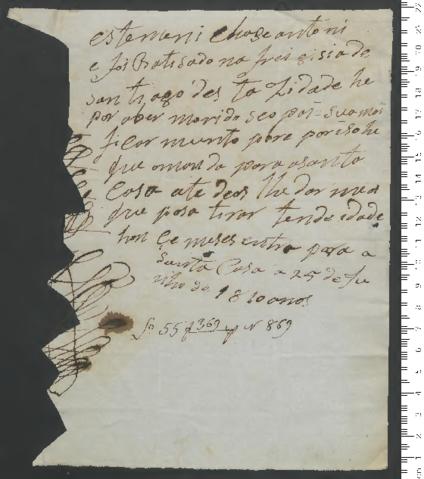 este meni chase antoni
e foi Batisado na freigisia de
san thiago des ta Zidade he
por aber morido seo pai Sua mai
ficar muinto pobre por isohe
que o manda para a santa
Casa ate deos lhe dar meos
que posa tirar tende idade
hon ze meses entra para a
Santa Casa a 25 de Ju
nho de 1810 anos
Lº 55 f 369 nº 869